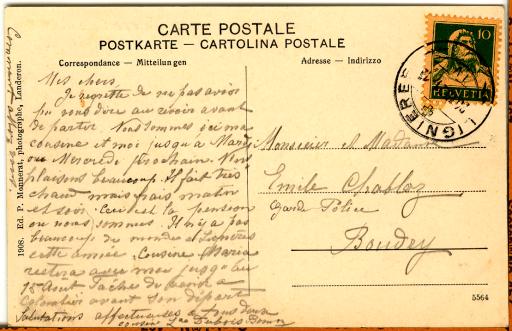 CARTE POSTALE
POSTKARTE — CARTOLINA POSTALE
Correspondance — Mitteilungen
Adresse — Indirizzo
10
HELVETIA
LIGNIERES
1908. Ed. P. Monnerat, Photographe, Landeron.
Mes chers,
Je regrette de ne pas avoir
pu vous dire au revoir avant
de partir. Nous sommes ici ma
cousine et moi jusqu'à Mardi
ou Mercredi prochain. Nous
plaisons beaucoup. Il fait très
chaud mais frais matin
et soir. Ceci est la pension
où nous sommes. Il n'y a pas
beaucoup de monde à Lignières
cette année. Cousine Maria
restera avec moi jusqu'au
15 Août
Colombier avant son départ
Salutations affectueuses à tous deux
cousine Dubois
Monsieur et Madame
Emile Chabloz
Garde Police
Boudry
5564